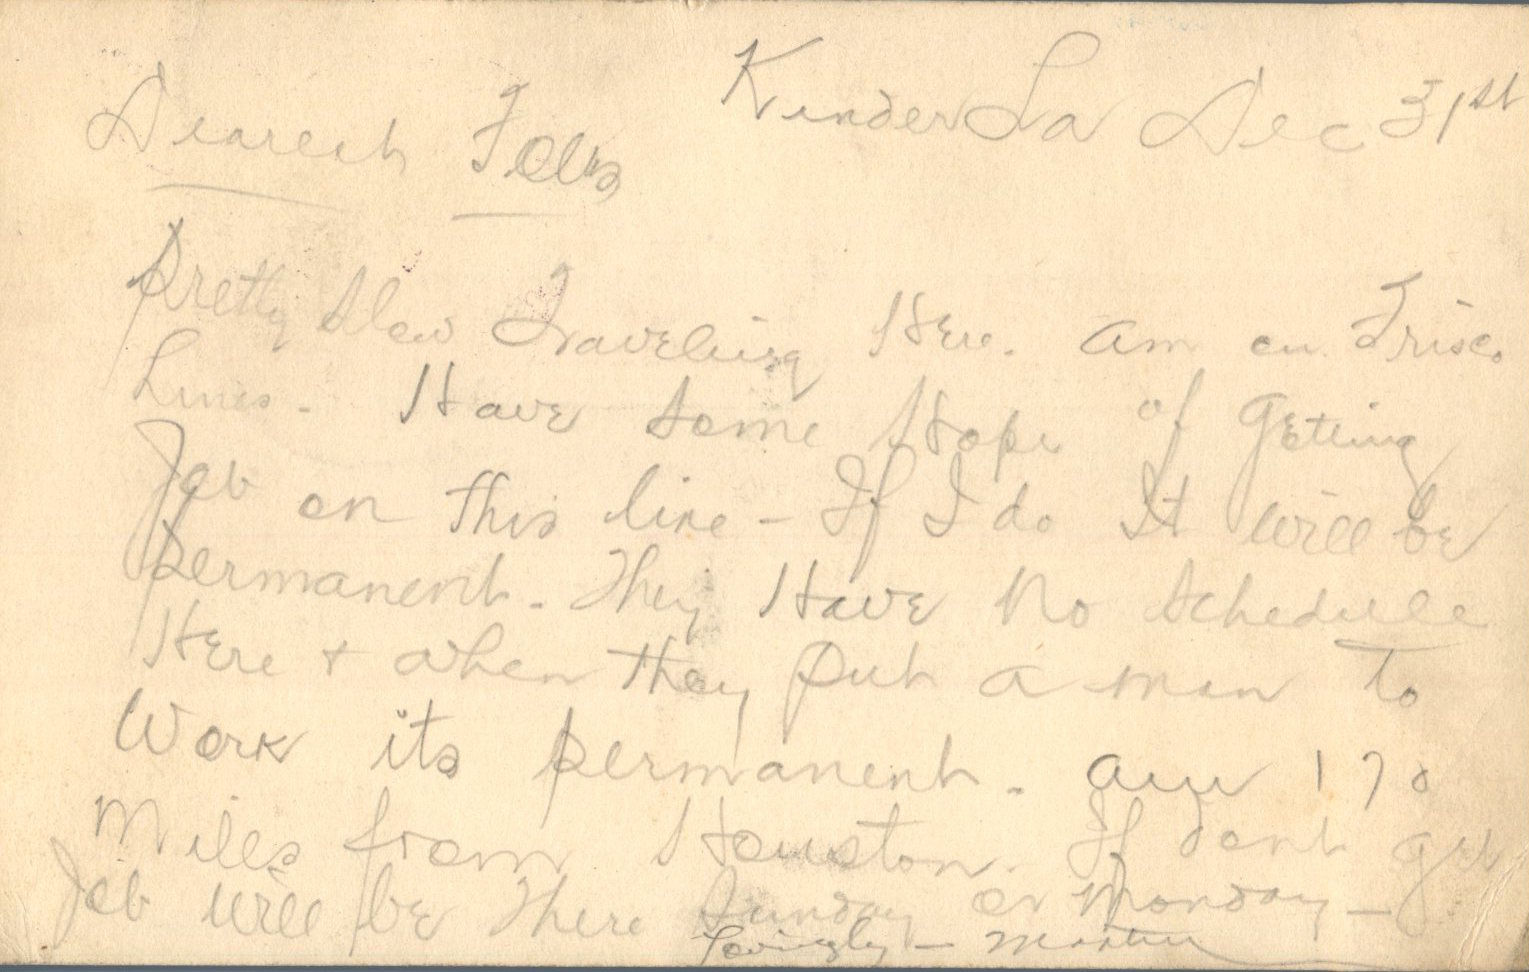 Kinder La Dec 31st
Dearest Folks
Pretty slow Traveling Here. Am on Frisco
Lines - Have some Hope of Getting
Job on this line - If I do It will be
permanent. They Have No schedule
Here + when they put a man to
Work its permanent. Am 170
Miles from Houston. If dont get
Job will be There Sunday or Monday -
Lovingly - Martin